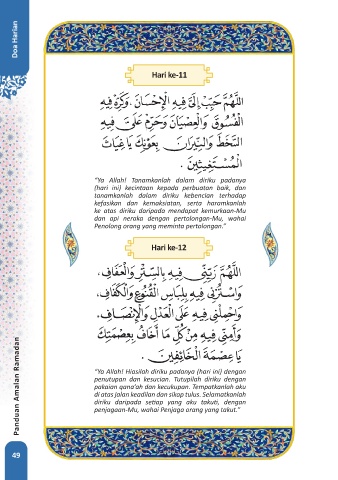 Doa Harian
Hari ke-11
اَللّٰهُمَّ حَبِّبْ إِلَيَّ فِيهِ الْإِحْسَانَ. وَكَرِّهْ فِيهِ
الْفُسُوقَ وَالْعِصْيَانَ وَحَرِّمْ عَلَيَّ فِيهِ
السَّخَطَ وَالنِّيرَانَ بِعَوْنِكَ يَا غِيَاثَ
الْمُسْتَغِيثِينَ .
“Ya Allah! Tanamkanlah dalam diriku padanya
(hari ini) kecintaan kepada perbuatan baik, dan
tanamkanlah dalam diriku kebencian terhadap
kefasikan dan kemaksiatan, serta haramkanlah
ke atas diriku daripada mendapat kemurkaan-Mu
dan api neraka dengan pertolongan-Mu, wahai
Penolong orang yang meminta pertolongan.”
Hari ke-12
اَللّٰهُمَّ زَيِّنِّي فِيهِ بِالسِّتْرِ وَالْعَفَافِ،
وَاسْتُرْنِي فِيهِ بِلِبَاسِ الْقُنُوعِ وَالْكَفَافِ،
وَاحْمِلْنِي فِيهِ عَلَى الْعَدْلِ وَالْإِنْصَافِ،
وَآمِنِّي فِيهِ مِنْ كُلِّ مَا أَخَافُ بِعِصْمَتِكَ
يَا عِصْمَةَ الْخَائِفِينَ .
“Ya Allah! Hiasilah diriku padanya (hari ini) dengan
penutupan dan kesucian. Tutupilah diriku dengan
pakaian qana’ah dan kecukupan. Tempatkanlah aku
di atas jalan keadilan dan sikap tulus. Selamatkanlah
diriku daripada setiap yang aku takuti, dengan
penjagaan-Mu, wahai Penjaga orang yang takut.”
Panduan Amalan Ramadan
49